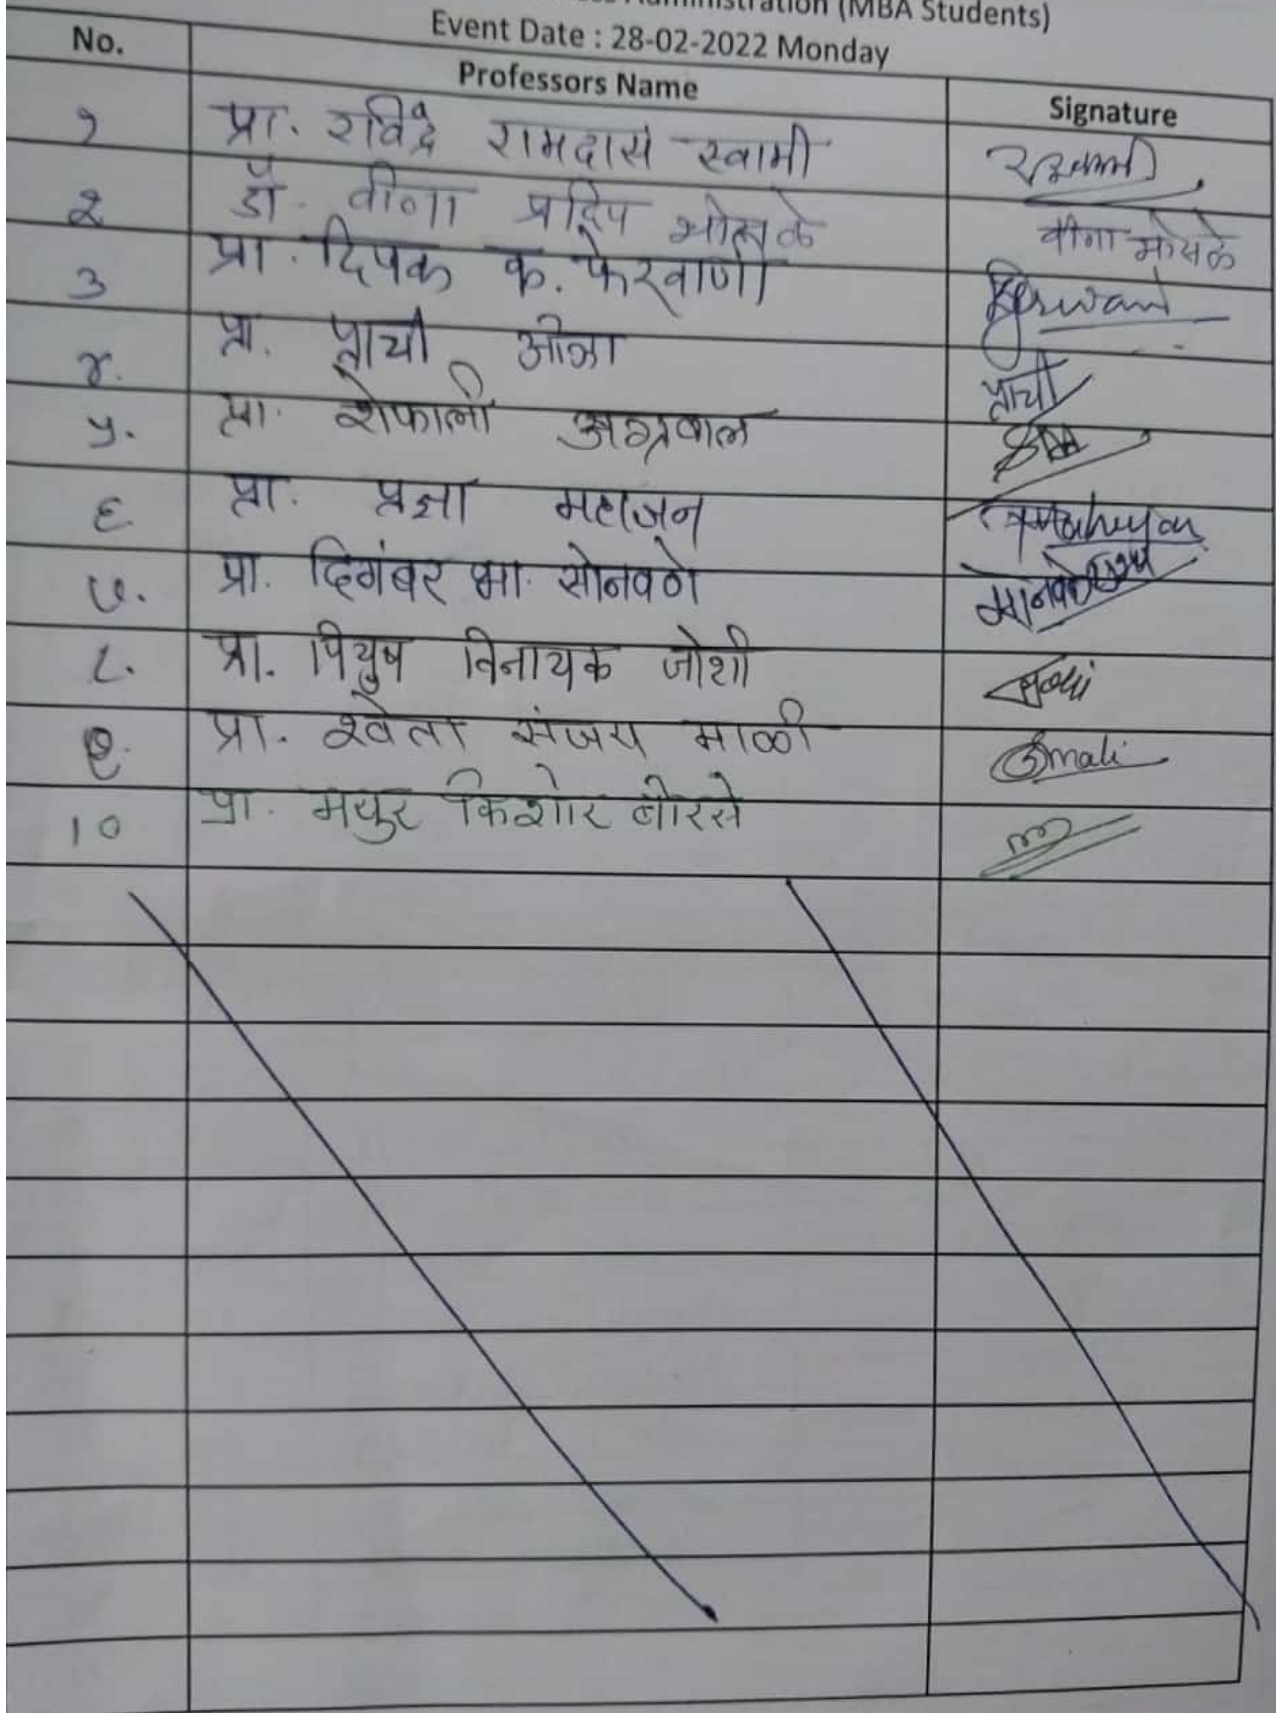 Administration (MBA Students)
Event Date : 28-02-2022 Monday
No. Professors Name Signature
१ प्रा. रविंद्र रामदास स्वामी
२ डॉ. वीणा प्रदिप भोसले वीणा भोसले
३ प्रा. दिपक क. फेरवाणी
४. प्रा. प्राची ओझा प्राची
५. प्रा. शेफाली अग्रवाल
६ प्रा. प्रज्ञा महाजन
७. प्रा. दिगंबर भा. सोनवणे
८. प्रा. पियुष विनायक जोशी Joshi
९. प्रा. श्वेता संजय माळी Smali
10 प्रा. मयुर किशोर बोरसे